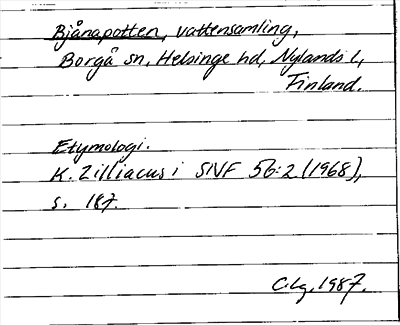 Bjånapotten, vattensamling,
Borgå sn, Helsinge hd, Nylands l,
Finland.
Etymologi.
K. Zilliacus i SNF 56:2 (1968),
s. 187.
C.Lg. 1987.